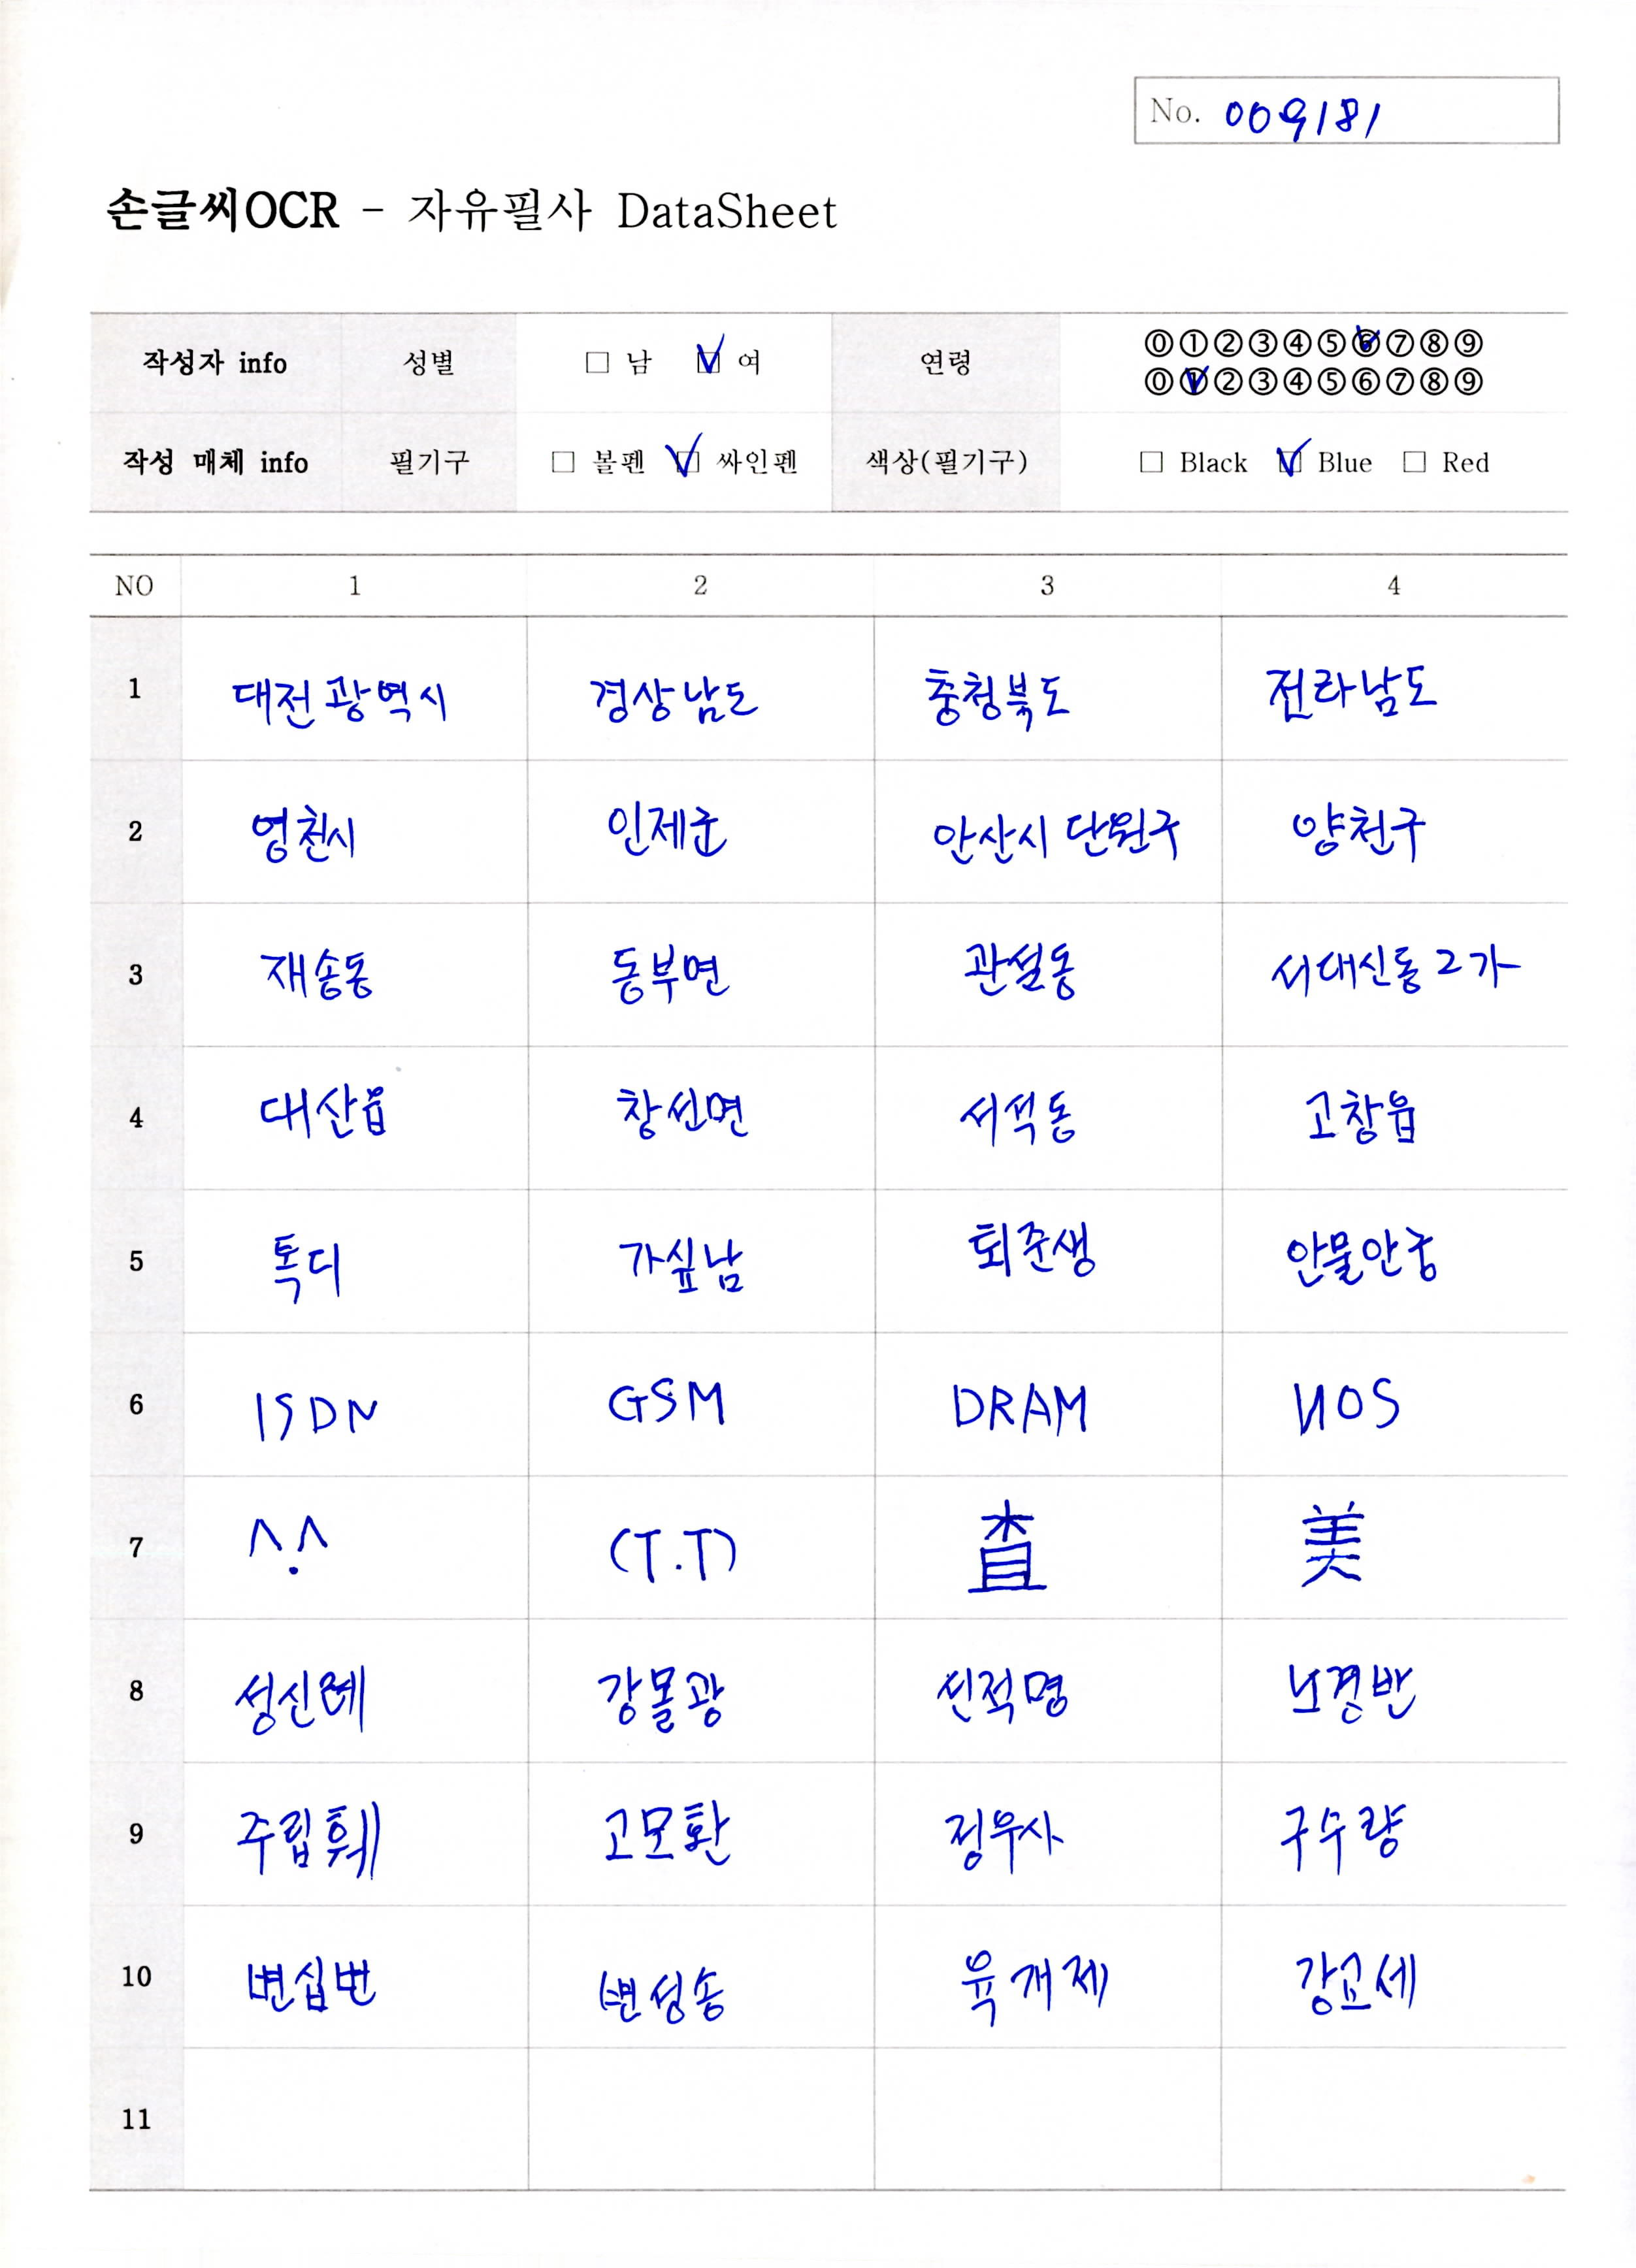 No. 009181
손글씨OCR - 자유필사 DataSheet
작성자 info 성별 □ 남 ☑ 여 연령 ⓪①②③④⑤⑥⑦⑧⑨
⓪①②③④⑤⑥⑦⑧⑨
작성 매체 info 필기구 □ 볼펜 ☑ 싸인펜 색상(필기구) □ Black ☑ Blue □ Red
NO 1 2 3 4
1 대전광역시 경상남도 충청북도 전라남도
2 영천시 인제군 안산시 단원구 양천구
3 재송동 동부면 관설동 서대신동2가
4 대산읍 창선면 서석동 고창읍
5 톡디 가싶남 퇴준생 안물안궁
6 ISDN GSM DRAM NOS
7 ^.^ (T.T) 査 美
8 성신례 강몰광 선적명 노경반
9 주립훼 고모환 정우사 구수량
10 변십번 변성송 육개제 강교세
11